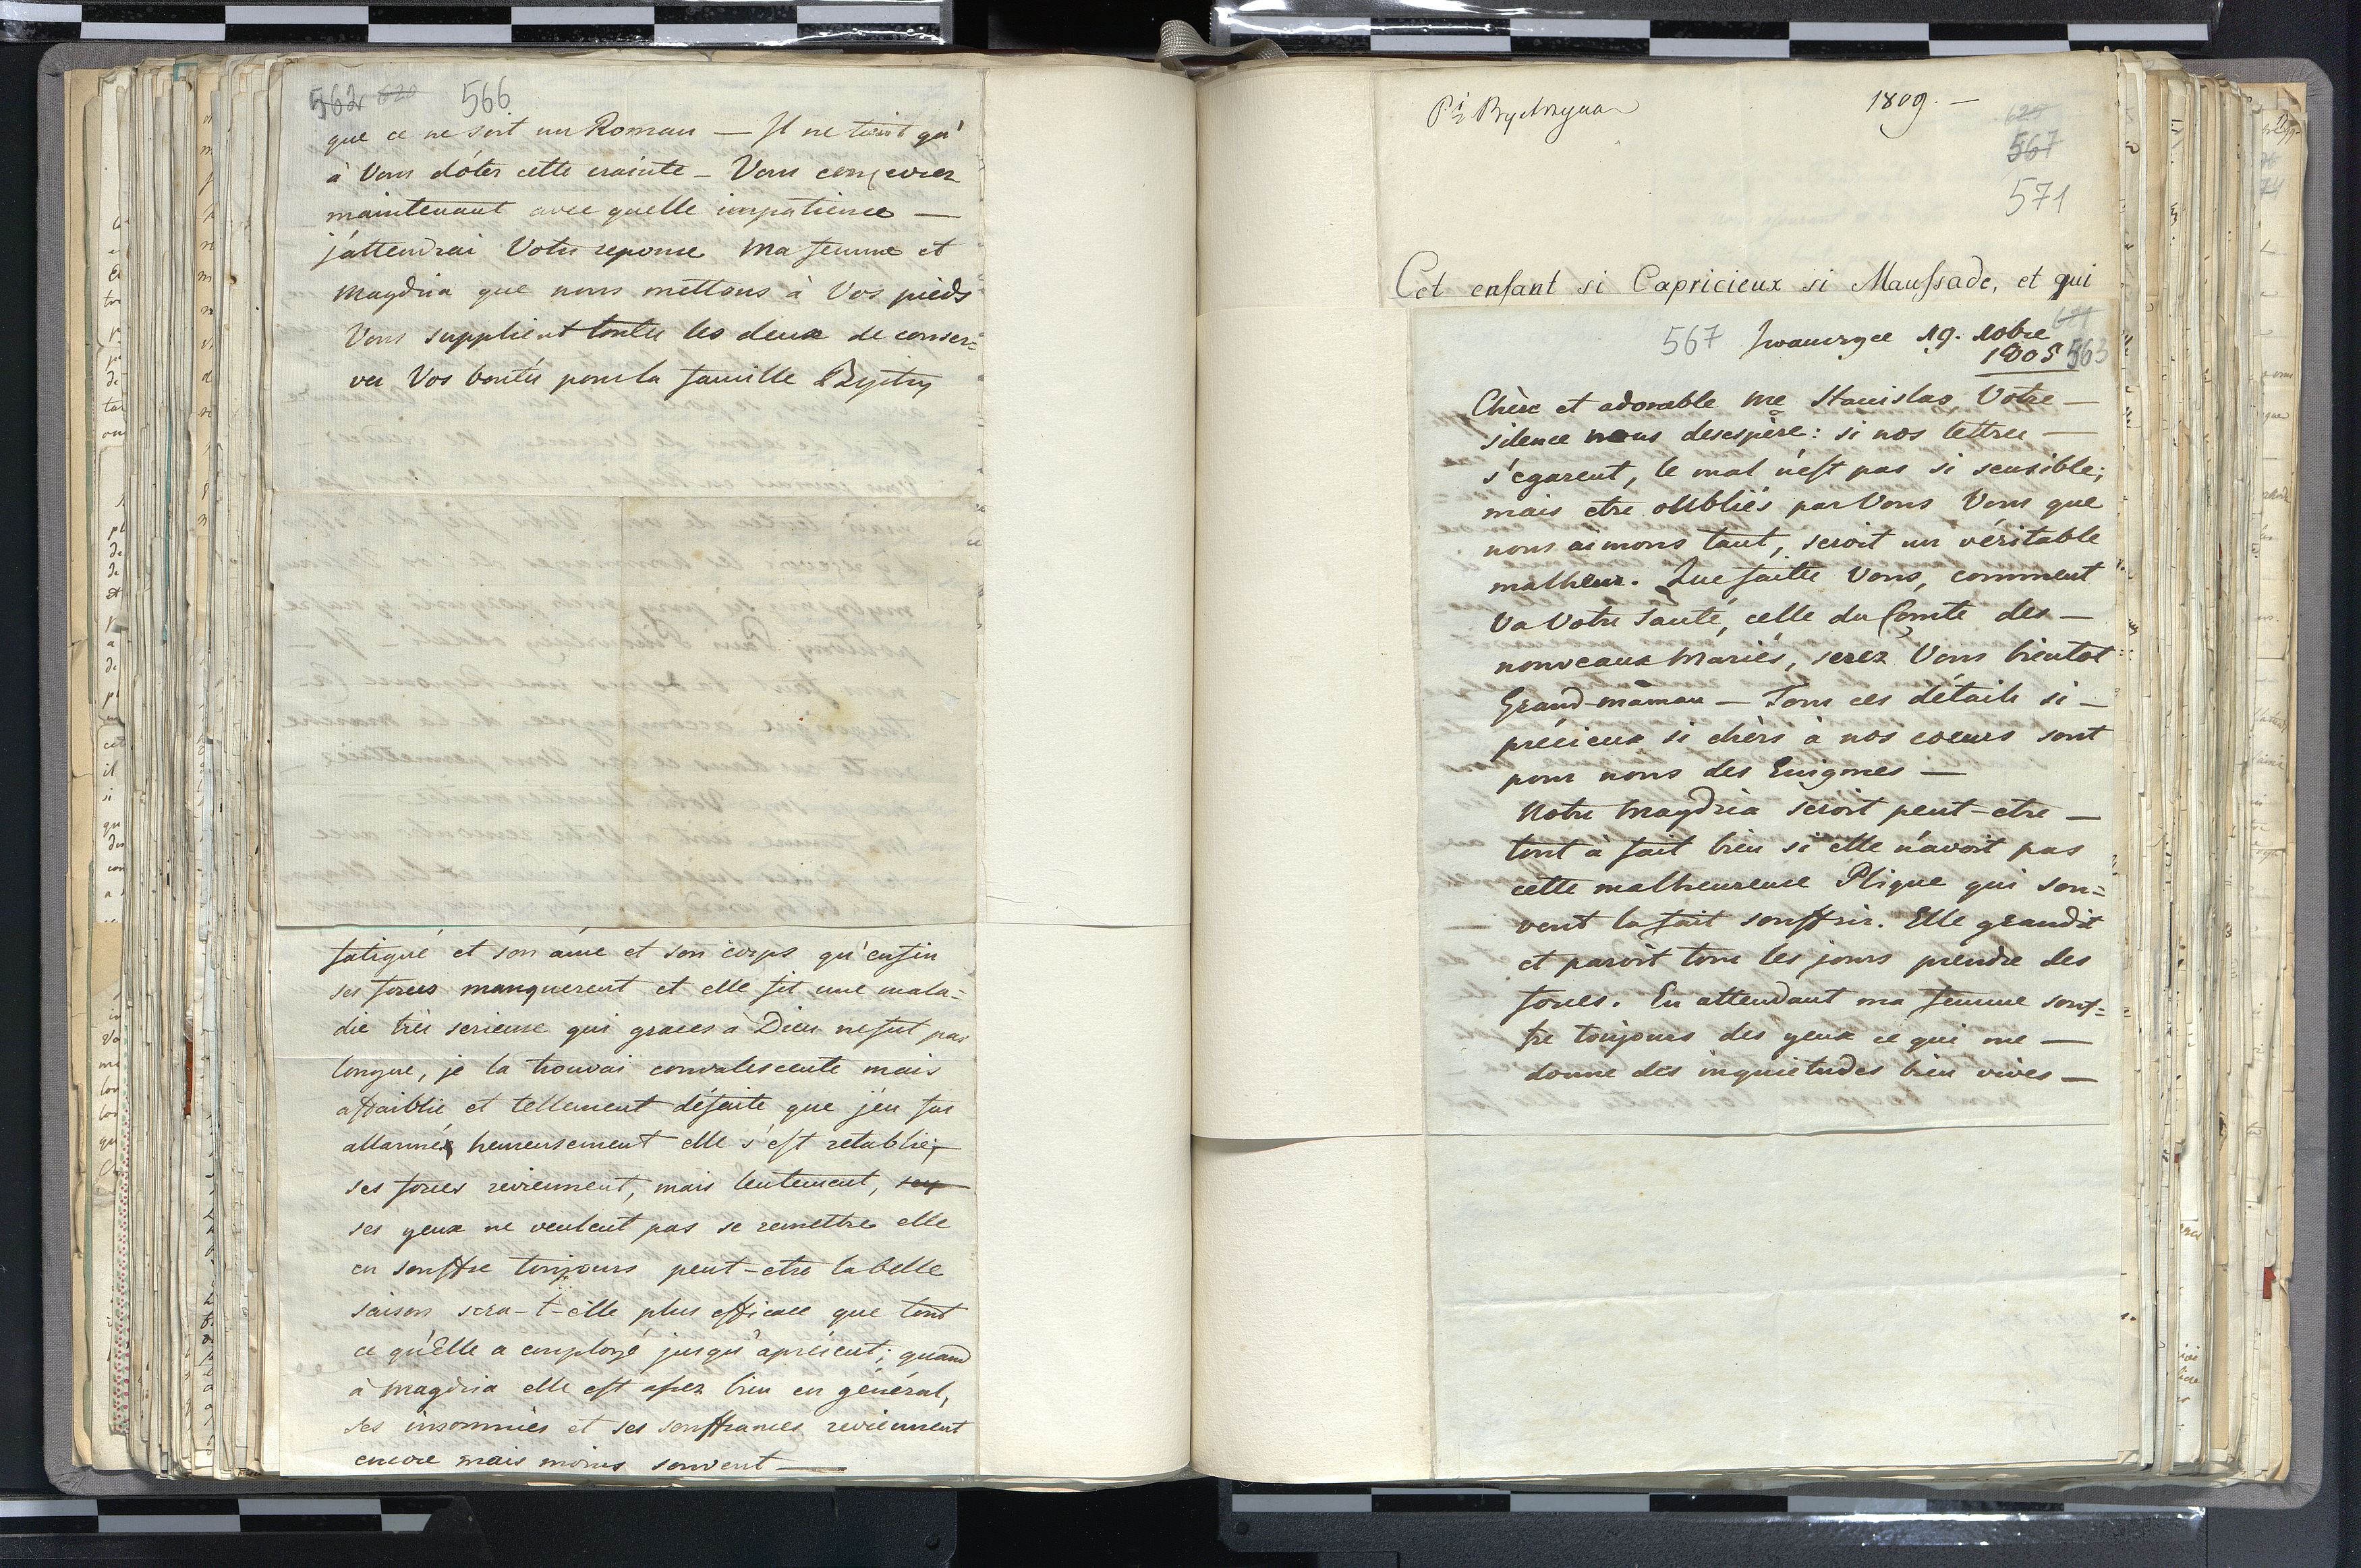 562 620 566
que ce ne soit un Roman — Il ne tient qu'
à Vous d'ôter cette crainte — Vous concevrez
maintenant avec quelle impatience —
j'attendrai Votre reponse Ma femme et
Magdzia que nous mettons à Vos pieds
Vous supplient toutes les deux de conser=
ver Vos bontés pour la famille Bystry
fatigué et son ame et son corps qu'enfin
ses forces manquerent et elle fit une mala=
die très serieuse qui graces a Dieu ne fut pas
longue, je la trouvai convalescente mais
affaiblie et tellement défaite que j'en fus
allarmé heureusement elle s'est retablie;
ses forces reviennent, mais lentement,
ses yeux ne veulent pas se remettre elle
en souffre toujours peut-etre la belle
saison sera-t-elle plus efficace que tout
ce qu'Elle a employé jusqu'apresent; quand
à Magdzia elle est assez bien en général,
ses insomnies et ses souffrances reviennent
encore mais moins souvent —
1809. —
625
567
571
Cet enfant si Capricieux si Maussade, et qui
567 19. 10bre 621
1805 563
Chère et adorable Me Stanislas, Votre —
silence nous desespère: si nos lettres —
s'egarent, le mal n'est pas si sensible;
mais etre oubliés par Vous Vous que
nous aimons tant, seroit un véritable
malheur. Que faites Vous, comment
Va Votre Santé, celle du Comte des —
nouveaux Mariés, serez Vous bientot
Grand-maman — Tous ces détails si —
précieux si chèrs à nos coeurs sont
pour nous des Enigmes —
Notre Magdzia seroit peut-etre —
tout à fait bien si elle n'avoit pas
cette malheureuse Plique qui sou=
vent la fait souffrir. Elle grandit
et paroit tous les jours prendre des
forces. En attendant ma femme souf=
fre toujours des yeux ce qui me —
donne des inquietudes bien vives —